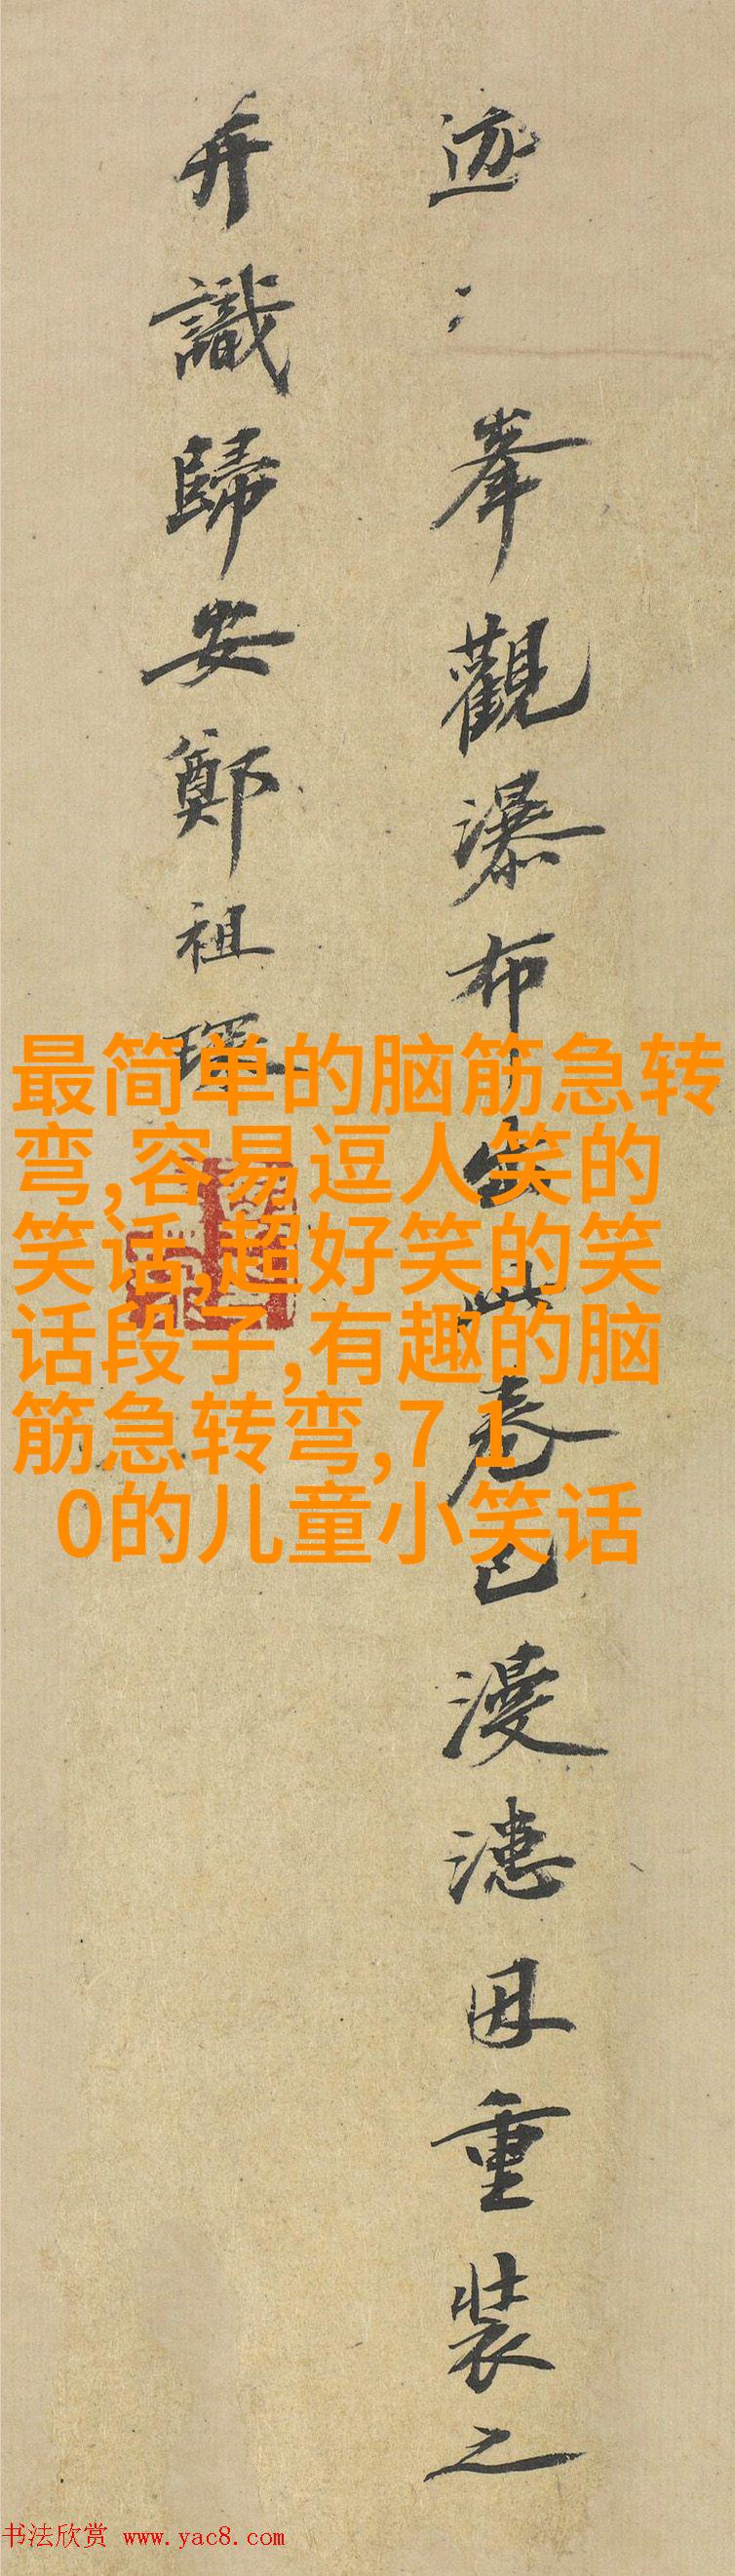 迹、峯觀瀑布出此卷已漫漶因重裝之
并識歸安鄭祖琛
最简单的脑筋急转
弯,容易逗人笑的
笑话,超好笑的笑
话段子,有趣的脑
筋急转弯,7 1
0的儿童小笑话
书法欣赏 www.yac8.com